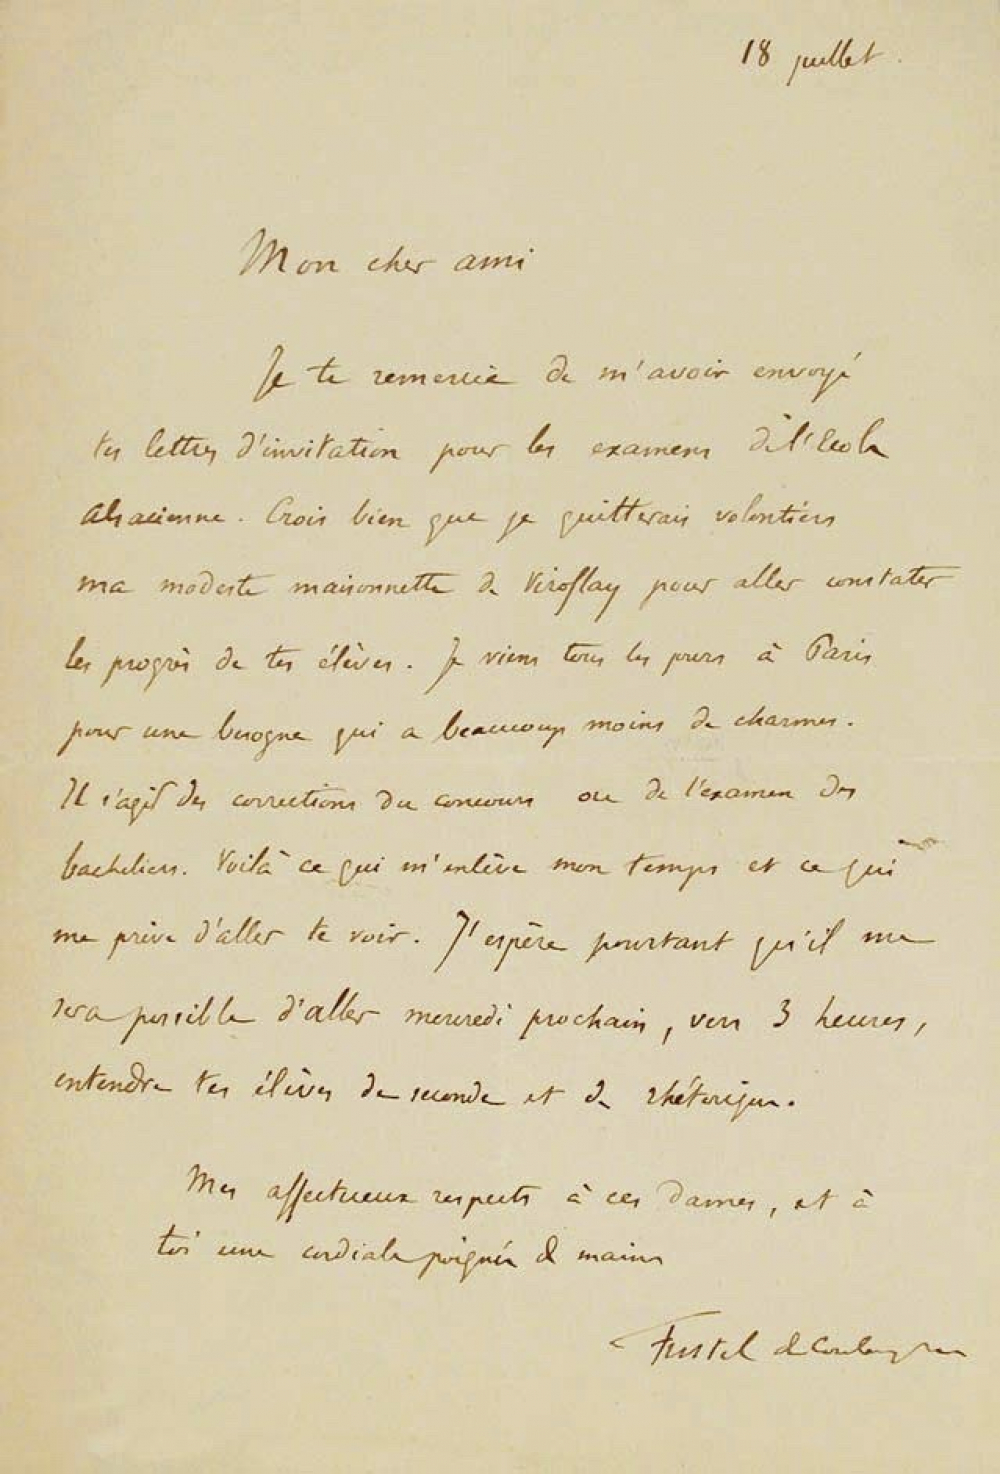 18 juillet.
Mon cher ami
Je te remercie de m'avoir envoyé
tes lettres d'invitation pour les examens de l'Ecole
alsacienne. Crois bien que je quitterais volontiers
ma modeste maisonnette de Viroflay pour aller constater
les progrès de tes élèves. Je viens tous les jours à Paris
pour une besogne qui a beaucoup moins de charmes.
Il s'agit des corrections du concours ou de l'examen des
bacheliers. Voilà ce qui m'enlève mon temps et ce qui
me prive d'aller te voir. J'espère pourtant qu'il me
sera possible d'aller mercredi prochain, vers 3 heures,
entendre tes élèves de seconde et de rhétorique.
Mes affectueux respects à ces dames, et à
toi une cordiale poignée de mains
Fustel de Coulanges